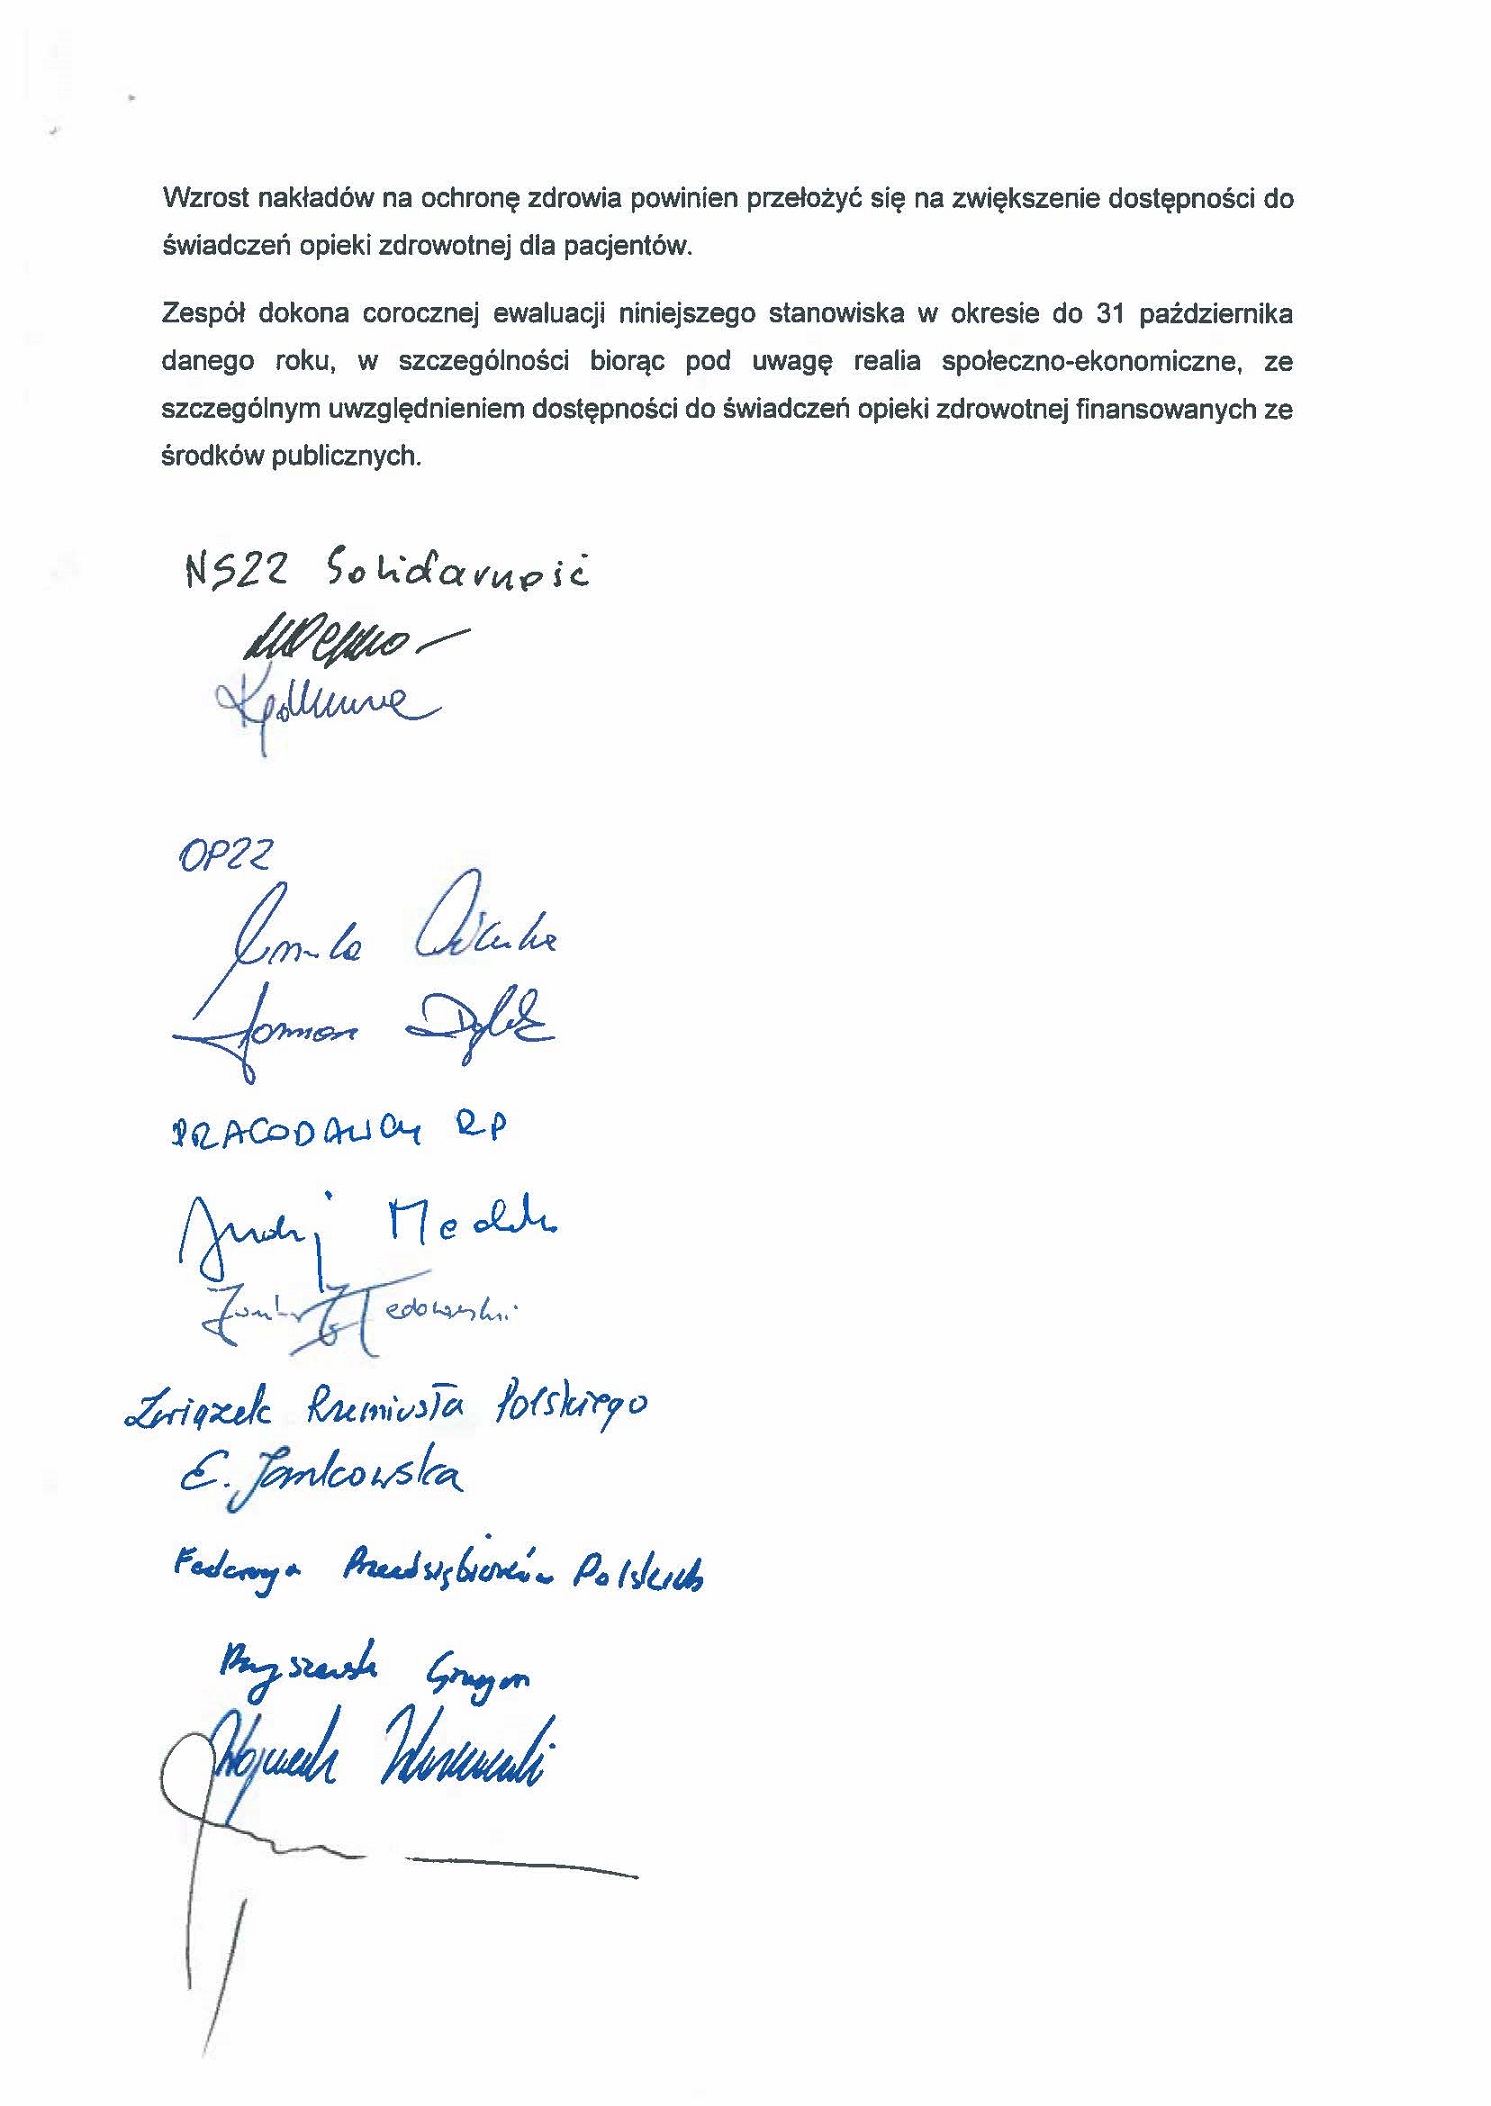 Wzrost nakładów na ochronę zdrowia powinien przełożyć się na zwiększenie dostępności do
świadczeń opieki zdrowotnej dla pacjentów.
Zespół dokona corocznej ewaluacji niniejszego stanowiska w okresie do 31 października
danego roku, w szczególności biorąc pod uwagę realia społeczno-ekonomiczne, ze
szczególnym uwzględnieniem dostępności do świadczeń opieki zdrowotnej finansowanych ze
środków publicznych.
NSZZ Solidarność
OPZZ
PRACODAWCY RP
Andrzej
Związek Rzemiosła Polskiego
E. Jankowska
Federacja Przedsiębiorców Polskich
Wojciech